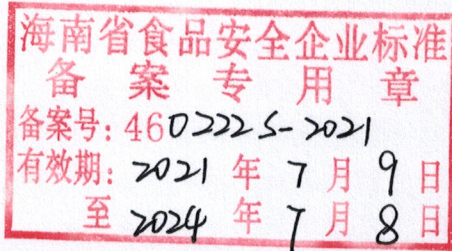 海南省食品安全企业标准
备案专用章
备案号: 460222S-2021
有效期: 2021年7月9日
至2024年7月8日